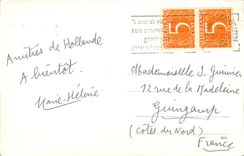 Amitiés de Hollande
A bientôt.
Marie-Hélène
5
5
Mademoiselle S. Guinic
12 rue de la Madeleine
Guingamp
(Côtes du Nord)
France